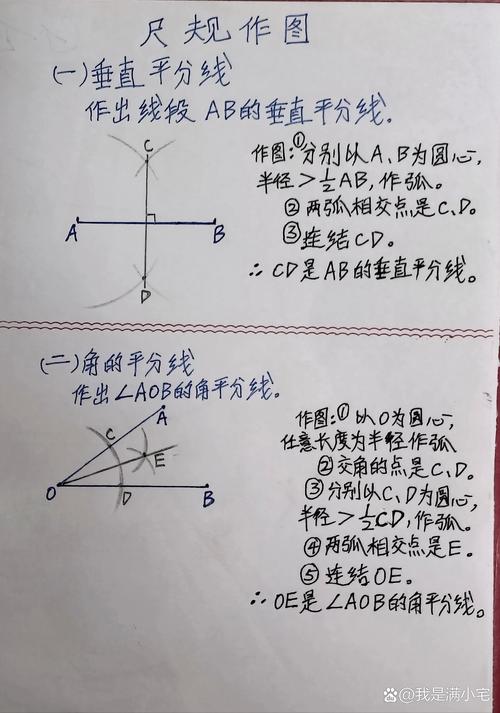 尺规作图
(一)垂直平分线
作出线段AB的垂直平分线.
C
A
B
D
作图:①分别以A、B为圆心,
半径>1/2AB,作弧。
②两弧相交点是C、D。
③连结CD。
∴CD是AB的垂直平分线。
(二)角的平分线
作出∠AOB的角平分线.
A
C
E
O
D
B
作图:①以O为圆心,
任意长度为半径作弧
②交角的点是C、D。
③分别以C、D为圆心,
半径>1/2CD,作弧。
④两弧相交点是E。
⑤连结OE。
∴OE是∠AOB的角平分线。
@我是满小宅